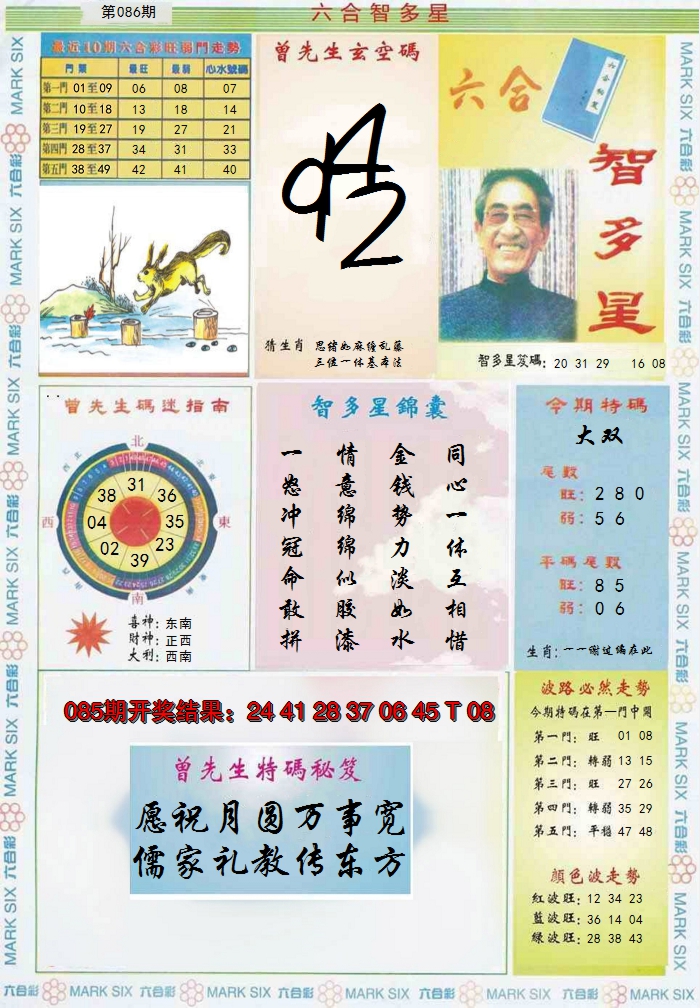 第086期
六合智多星
最近10期六合彩旺弱門走勢
門類 最旺 最弱 心水號碼
第一門 01至09 06 08 07
第二門 10至18 13 18 14
第三門 19至27 19 27 21
第四門 28至37 34 31 33
第五門 38至49 42 41 40
曾先生玄空碼
猜生肖 思绪如麻缠乱藤
三位一休基本法
六合
六合秘笈
智多星
智多星笈碼: 20 31 29 16 08
曾先生碼迷指南
北
東北
東
南
西
西北
31
36
35
23
39
02
04
38
喜神: 东南
財神: 正西
大利: 西南
智多星錦囊
同心一休互相惜
金钱势力淡如水
情意绵绵似胶漆
一怒冲冠命敢拼
今期特碼
大双
尾數
旺: 2 8 0
弱: 5 6
平碼尾數
旺: 8 5
弱: 0 6
生肖: 一一谢过编在此
085期开奖结果: 24 41 28 37 06 45 T 08
曾先生特碼秘笈
愿祝月圆万事宽
儒家礼教传东方
波路必然走勢
今期特碼在第一門中開
第一門: 旺 01 08
第二門: 轉弱 13 15
第三門: 旺 27 26
第四門: 轉弱 35 29
第五門: 平穩 47 48
顔色波走勢
紅波旺: 12 34 23
藍波旺: 36 14 04
綠波旺: 28 38 43
六合彩 MARK SIX 六合彩 MARK SIX 六合彩 MARK SIX 六合彩 MARK SIX 六合彩 MARK SIX